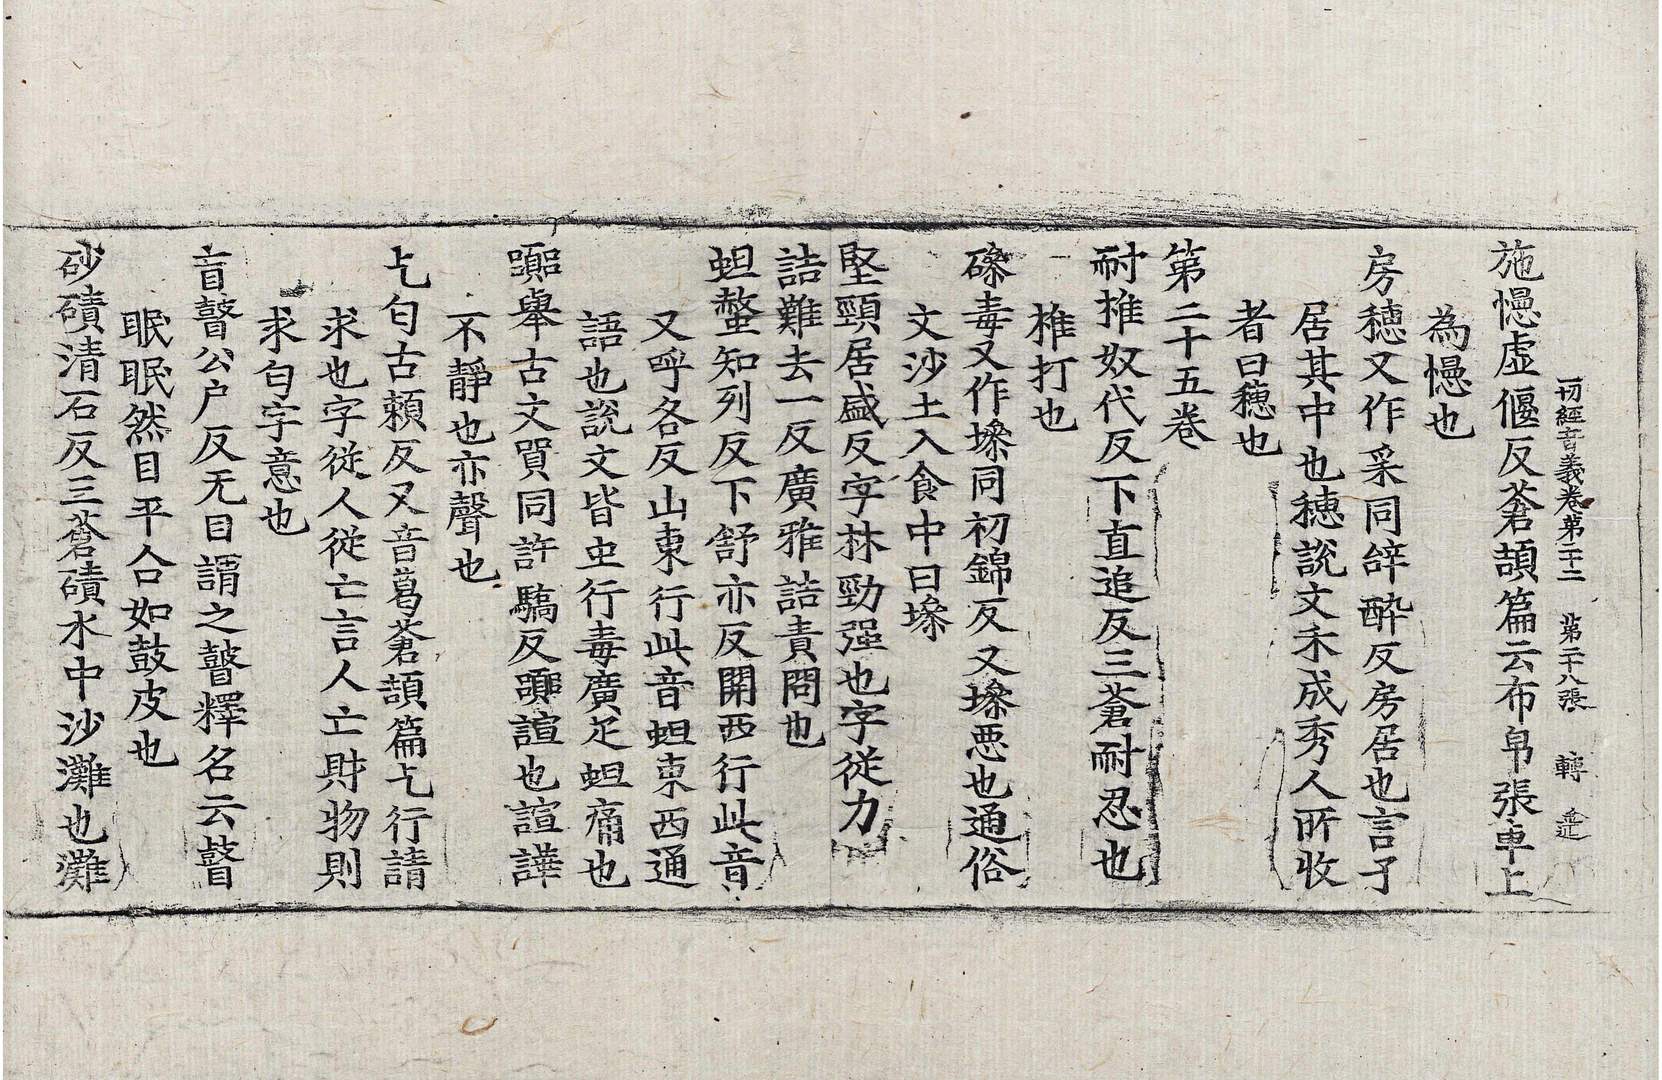 初經音義卷第二十二 第二十八張 轉 㢠
施幰虛偃反蒼頡篇云布帛張車上
為幰也
房穗又作采同辝醉反房居也言子
居其中也穗說文禾成秀人所收
者曰穗也
第二十五卷
耐推奴代反下直追反三蒼耐忍也
推打也
磣毒又作墋同初錦反又墋惡也通俗
文沙土入食中曰墋
堅頸居盛反字林勁强也字從力
詰難去一反廣雅詰責問也
蛆螫知列反下舒亦反關西行此音
又呼各反山東行此音蛆東西通
語也說文皆虫行毒廣疋蛆痛也
嚻舉古文貿同許驕反嚻諠也諠譁
不靜也亦聲也
乞匄古賴反又音葛蒼頡篇乞行請
求也字從人從亡言人亡財物則
求匄字意也
盲瞽公戶反无目謂之瞽釋名云瞽
眠眠然目平合如鼓皮也
砂磧清石反三蒼磧水中沙灘也灘